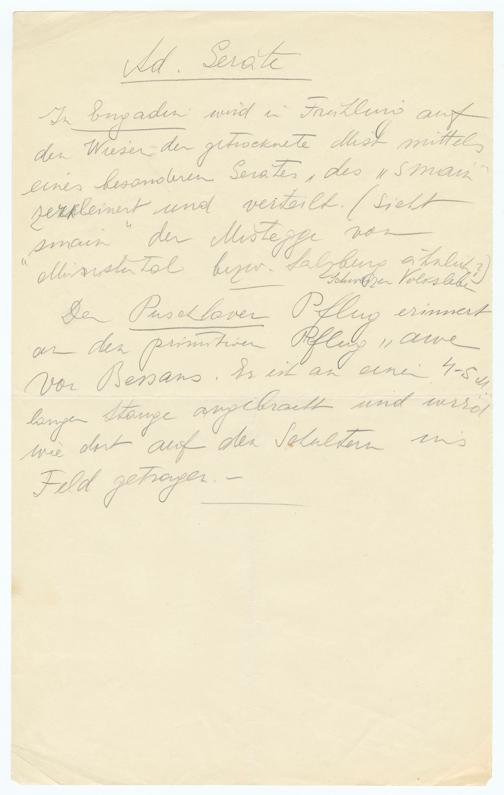 Ad. Geräte
In Engadin wird in Frühling auf
den Wiesen der getrocknete Mist mittels
eines besonderen Gerätes, des „smain"
zerkleinert und verteilt. (Sieht
"smain" der Mistegge vom
Münstertal bezw. Salzburg ähnlich?)
Schweizer Volksleben
Der Puschlaver Pflug erinnert
an den primitiven Pflug „
von Bessans. Er ist an einer 4-5 m
langen Stange angebracht und wird
wie dort auf den Schultern ins
Feld getragen. –